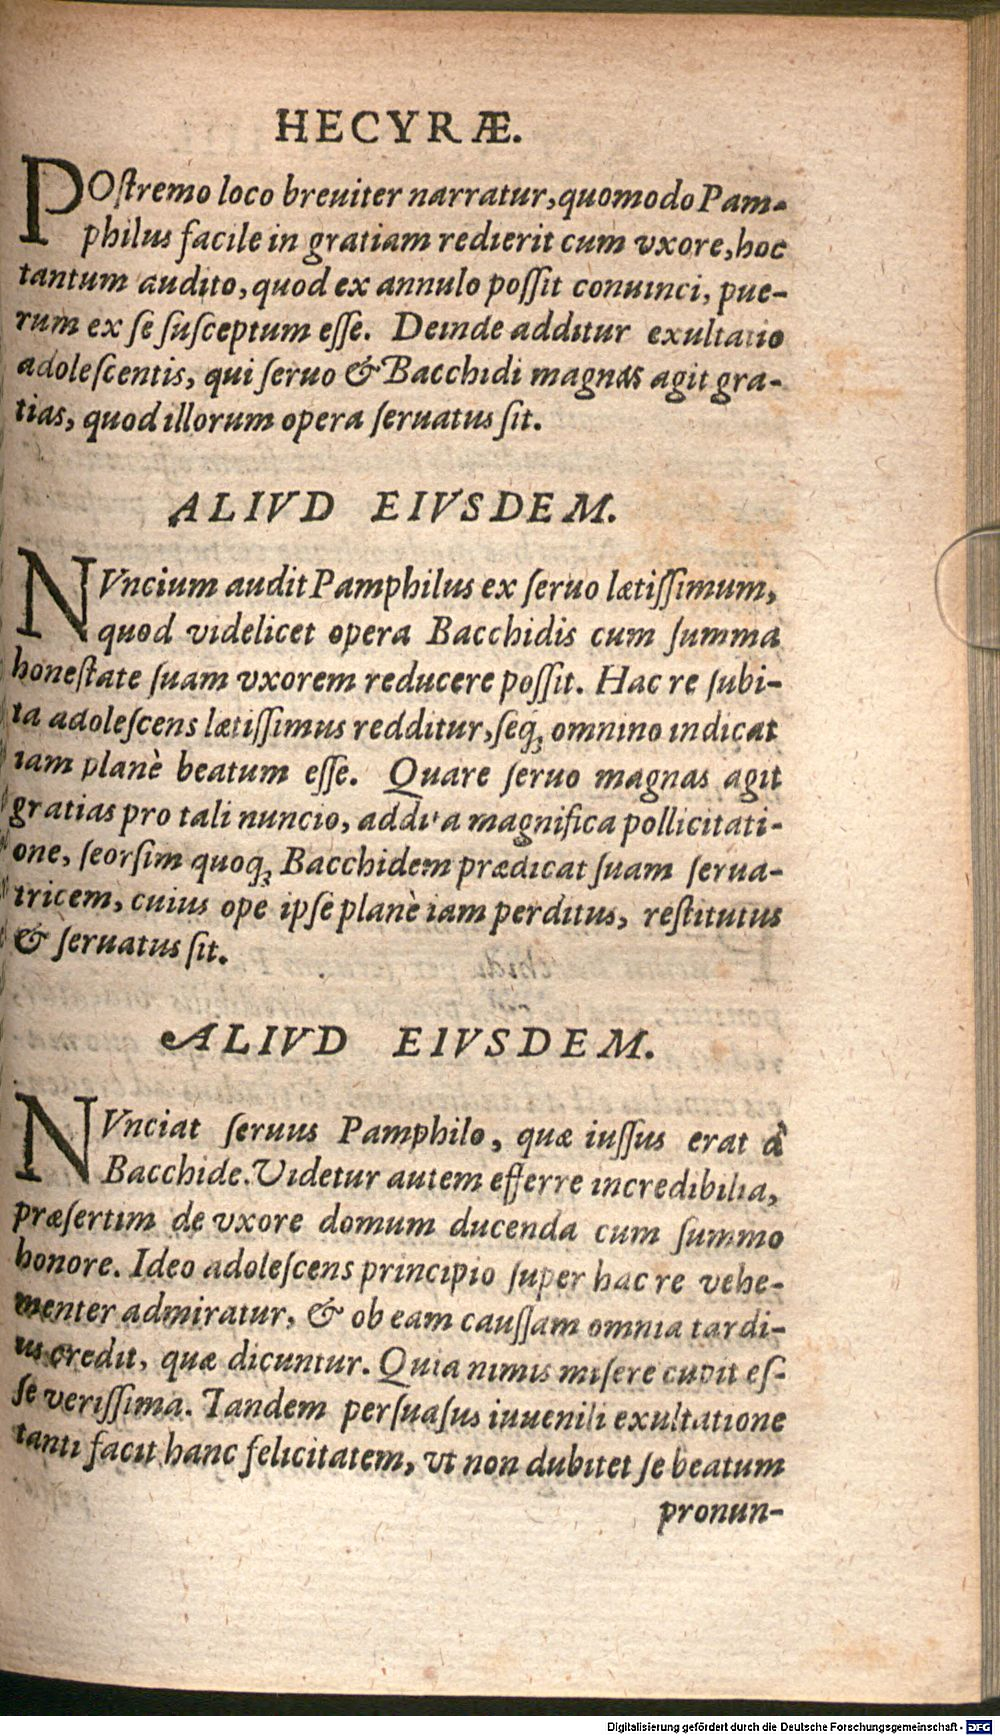 HECYRÆ.
POſtremo loco breuiter narratur, quomodo Pam-
philus facile in gratiam redierit cum vxore, hoc
tantum audito, quod ex annulo poſſit conuinci, pue-
rum ex ſe ſuſceptum eſſe. Deinde additur exultatio
adoleſcentis, qui ſeruo & Bacchidi magnas agit gra-
tias, quod illorum opera ſeruatus ſit.
ALIVD EIVSDEM.
NVncium audit Pamphilus ex ſeruo lætiſſimum,
quod videlicet opera Bacchidis cum ſumma
honeſtate ſuam vxorem reducere poſſit. Hac re ſubi-
ta adoleſcens lætiſſimus redditur, ſeq́ꝫ omnino indicat
iam planè beatum eſſe. Quare ſeruo magnas agit
gratias pro tali nuncio, addita magnifica pollicitati-
one, ſeorſim quoqꝫ Bacchidem prædicat ſuam ſerua-
tricem, cuius ope ipſe planè iam perditus, reſtitutus
& ſeruatus ſit.
ALIVD EIVSDEM.
NVnciat ſeruus Pamphilo, quæ iuſſus erat à
Bacchide. Videtur autem efferre incredibilia,
præſertim de vxore domum ducenda cum ſummo
honore. Ideo adoleſcens principio ſuper hac re vehe-
menter admiratur, & ob eam cauſſam omnia tardi-
us credit, quæ dicuntur. Quia nimis miſere cupit eſ-
ſe veriſſima. Tandem perſuaſus iuuenili exultatione
tanti facit hanc felicitatem, vt non dubitet ſe beatum
pronun-
Digitalisierung gefördert durch die Deutsche Forschungsgemeinschaft - DFG